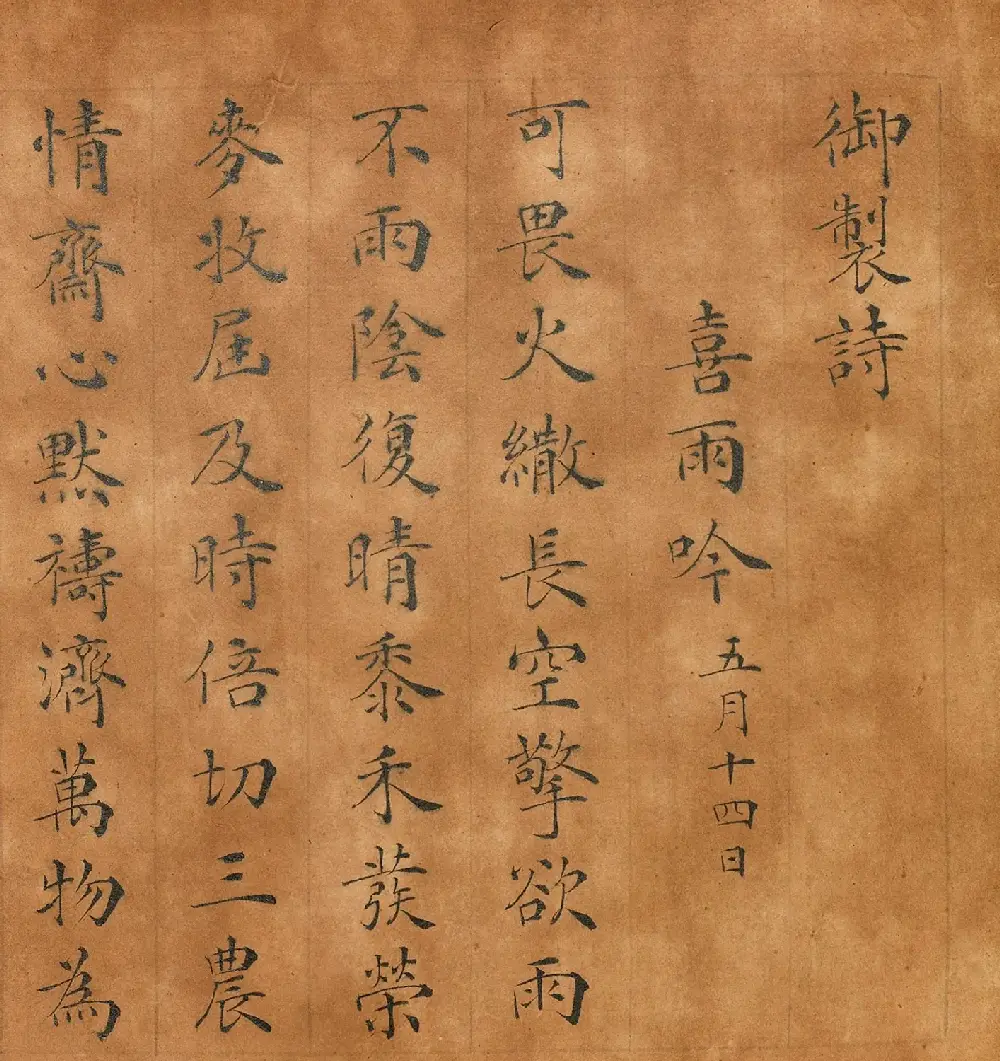 御製詩
喜雨吟 五月十四日
可畏火繖長空擎欲雨
不雨陰復晴黍禾發榮
麥收屆及時倍切三農
情齋心默禱濟萬物為